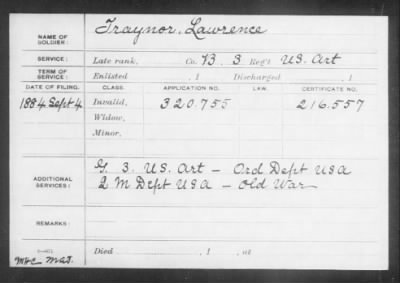 NAME OF SOLDIER: Traynor, Lawrence
SERVICE: Late rank, Co. B 3 Reg't US. Art
TERM OF SERVICE: Enlisted , 1 Discharged , 1
DATE OF FILING. CLASS. APPLICATION NO. LAW. CERTIFICATE NO.
1884 Sept 4 Invalid, 320.755 216.557
Widow,
Minor,
ADDITIONAL SERVICES: G 3. US. Art - Ord Dept USA
2 M Dept USA - Old War
REMARKS:
Died , 1 , at